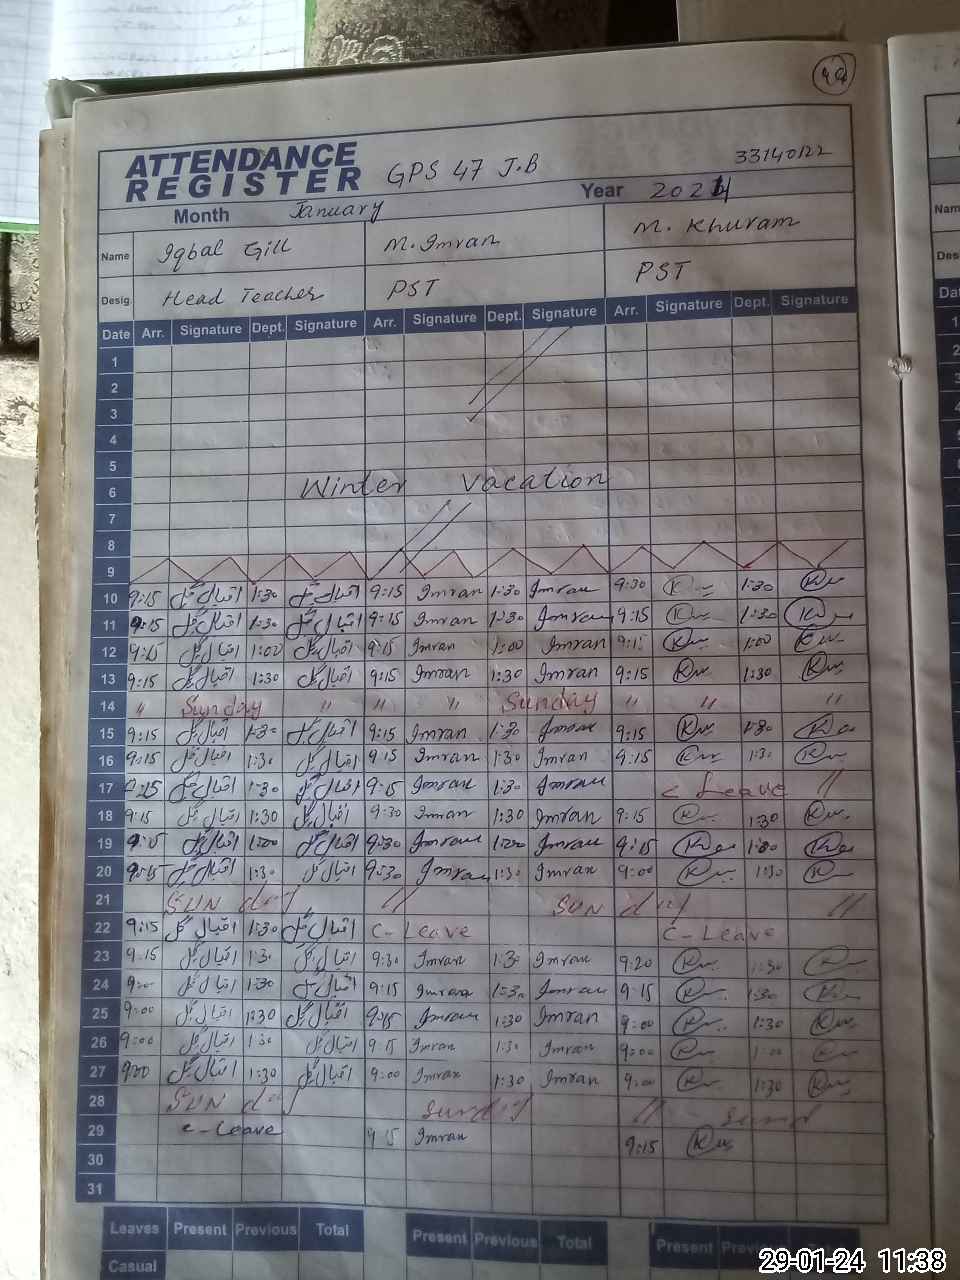 ATTENDANCE
REGISTER GPS 47 J.B 33140122
Month January Year 2024
Name Iqbal Gill M. Imran M. Khuram
Desig. Head Teacher PST PST
Date Arr. Signature Dept. Signature Arr. Signature Dept. Signature Arr. Signature Dept. Signature
1
2
3
4
5
6 Winter Vacation
7
8
9
10 9:15 اقبال گل 1:30 اقبال گل 9:15 Imran 1:30 Imran 9:30 1:30
11 9:15 اقبال گل 1:30 اقبال گل 9:15 Imran 1:30 Imran 9:15 1:30
12 9:15 اقبال گل 1:00 اقبال گل 9:15 Imran 1:00 Imran 1:00
13 9:15 اقبال گل 1:30 اقبال گل 9:15 Imran 1:30 Imran 9:15 1:30
14 " Sunday " " " Sunday " " "
15 9:15 اقبال گل 1:30 اقبال گل 9:15 Imran 1:30 Imran 9:15 1:30
16 9:15 اقبال گل 1:30 اقبال گل 9:15 Imran 1:30 Imran 9:15 1:30
17 9:15 اقبال گل 1:30 اقبال گل 9:15 Imran 1:30 Imran c Leave //
18 9:15 اقبال گل 1:30 اقبال گل 9:30 Imran 1:30 Imran 9:15 1:30
19 9:15 اقبال گل 1:00 اقبال گل 9:30 Imran 1:00 Imran 9:15 1:00
20 9:15 اقبال گل 1:30 اقبال گل 9:30 Imran 1:30 Imran 9:00 1:30
21 SUN day // SUN day //
22 9:15 اقبال گل 1:30 اقبال گل C-Leave C-Leave
23 9:15 اقبال گل 1:30 اقبال گل 9:30 Imran 1:30 Imran 9:20 1:30
24 9:00 اقبال گل 1:30 اقبال گل 9:15 Imran 1:30 Imran 9:15 1:30
25 9:00 اقبال گل 1:30 اقبال گل 9:15 Imran 1:30 Imran 9:00 1:30
26 9:00 اقبال گل 1:30 اقبال گل 9:15 Imran 1:30 Imran 9:00 1:00
27 9:00 اقبال گل 1:30 اقبال گل 9:00 Imran 1:30 Imran 9:00 1:30
28 SUN day Sunday //
29 c-Leave 9:15 Imran 9:15
30
31
Leaves Present Previous Total Present Previous Total Present
Casual
29-01-24 11:38